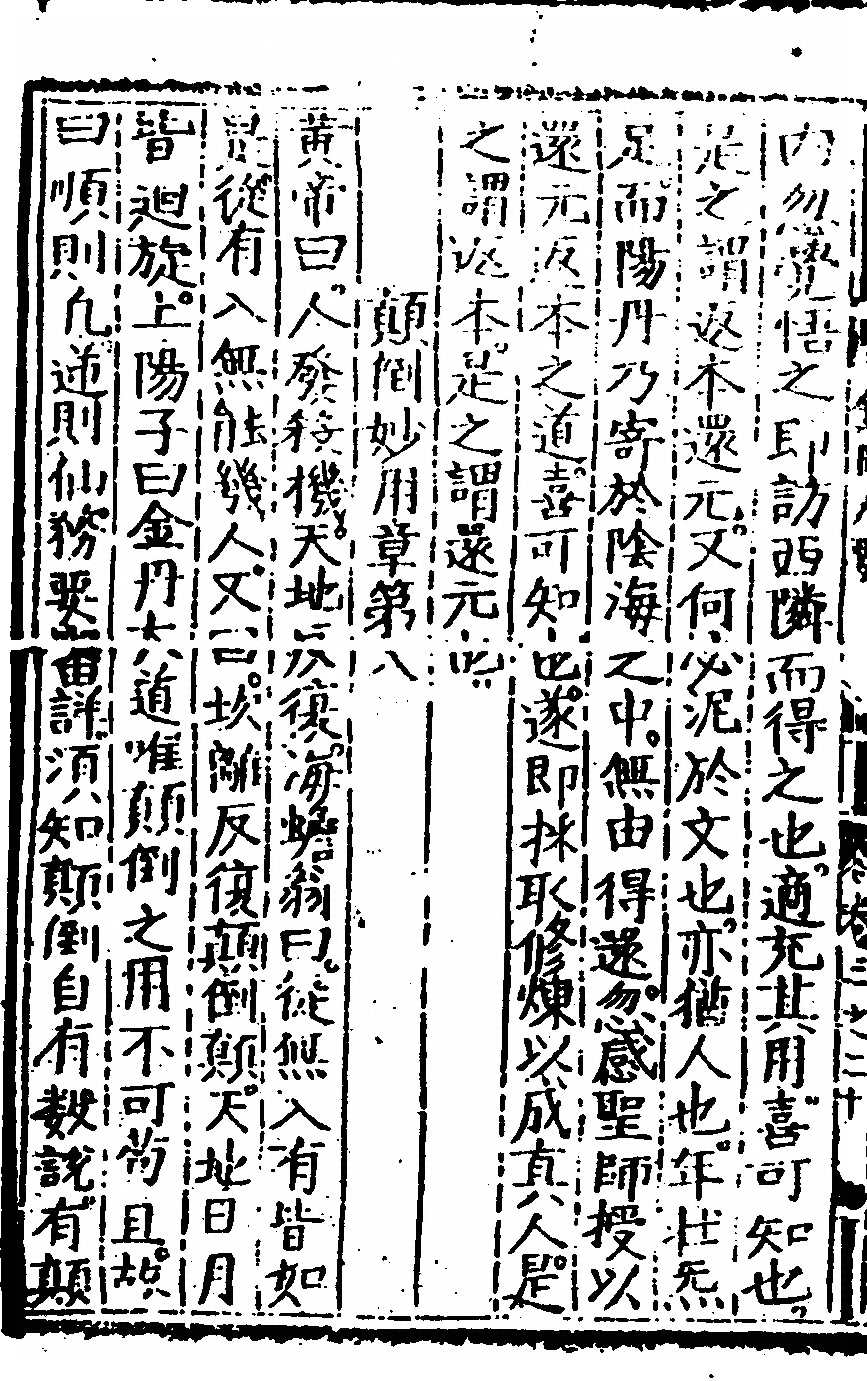 内勿覺悟之即訪西隣而得之也適充其用喜可知也
是之謂返本還元又何必泥於文也亦猶人也年壯炁
足而陽丹乃寄於陰海之中無由得還忽感聖師授以
還元返本之道喜可知也遂即採取修煉以成真人是
之謂返本是之謂還元也
顛倒妙用章第八
黃帝曰人發殺機天地反復海蟾翁曰從無入有皆如
是從有入無能幾人又曰坎離反復顛倒顛天地日月
皆迴旋上陽子曰金丹大道唯顛倒之用不可苟且故
曰順則凡逆則仙務要審詳須知顛倒自有數說有顛